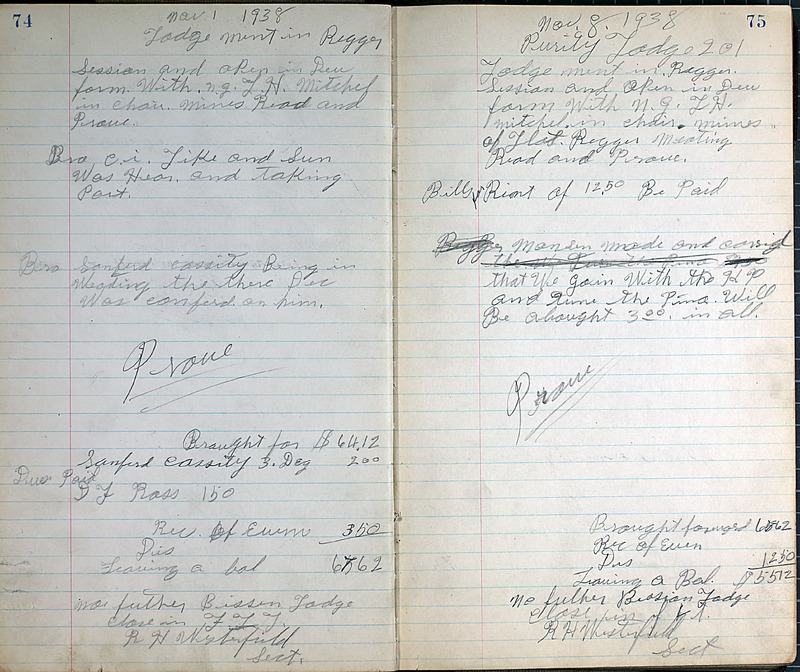 74
Nov 1 1938
Lodge ment in Regger
Session and open in Deu
form. With. n.g. L.H. Mitchel
in chair. mines Read and
Prove.
Bro c.i. Tike and Sun
Was Hear. and taking
Part.
Bro Sanferd cassity Being in
Weading the there Dec
Was conferd on him.
Prove
Brought for $ 64.12
Sanferd cassity 3. Deg 200
Dues Paid
D F Ross 150
Rec. of Evem 350
Dis
Leaving a bal 67.62
no futher Bissen Lodge
close in F. L. T.
R H Westerfield
Sect.
75
Nov. 8. 1938
Purity Lodge 201
Lodge ment in. Regger.
Session and Open in Deu
form With N. G. L.H.
Mitchel. in chair. mines
of Last. Regger Meating
Read and Prove.
Bills Rient of 12.50 Be Paid
Monsen made and carrid
that We goin With the K P
and tune the Pina. Will
Be abought 3.00. in all.
Prove
Brought forward 67.62
Rec of Even
Dis 12.50
Leaving a Bal. $ 55.12
no futher Bession Lodge
close in F. L. T.
R H Westerfield
Sect